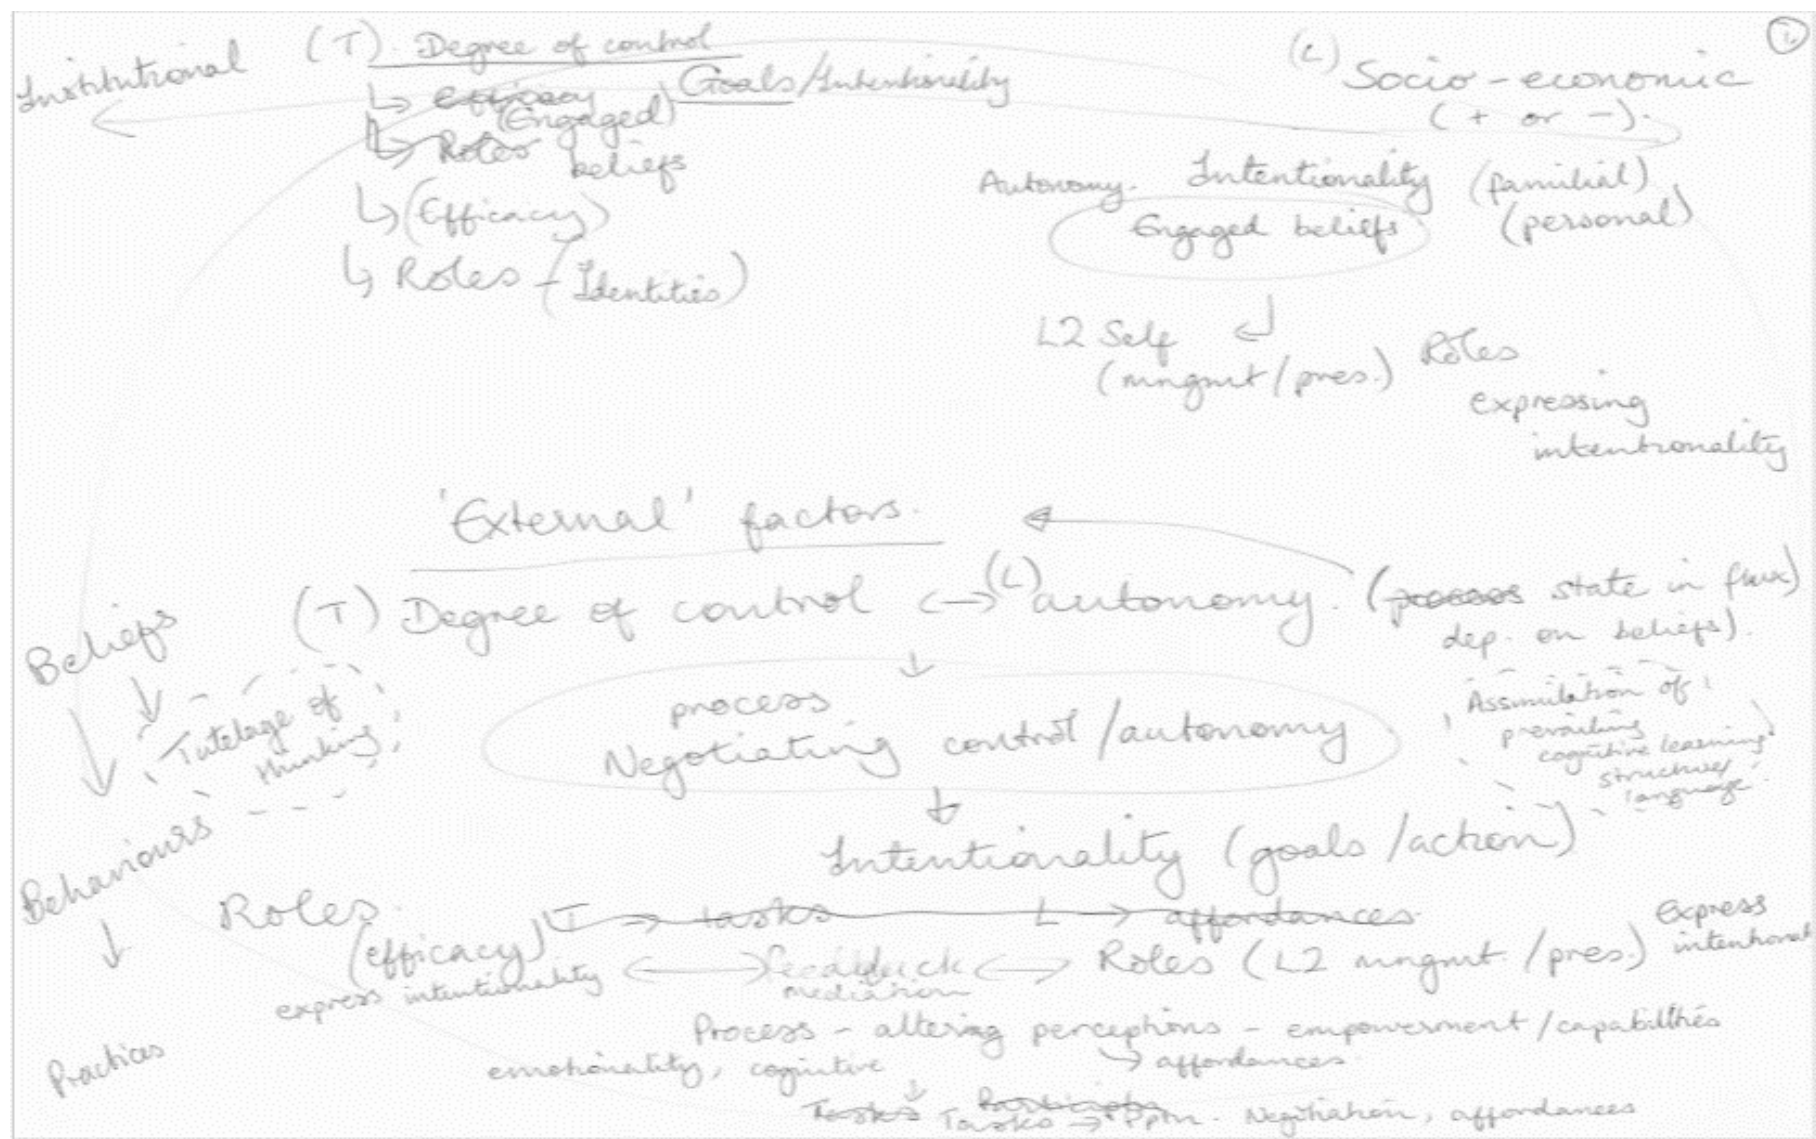 Institutional
(T). Degree of control
↳ efficacy Goals/Intentionality
(Engaged)
↳ Roles beliefs
↳ (Efficacy)
↳ Roles - (Identities)
(L) Socio-economic
(+ or -).
Autonomy. Intentionality (familial)
Engaged beliefs (personal)
L2 Self
(mngmt/pres.) Roles
expressing
intentionality
'External' factors.
(T) Degree of control <-> (L) autonomy. (process state in flux)
dep. on beliefs).
Beliefs
Tutelage of
thinking
process
Negotiating control/autonomy
Assimilation of
prevailing
cognitive learning
structures
language
Intentionality (goals/action)
Behaviours
Roles.
T → tasks L → affordances
(efficacy)
express intentionality
feedback
mediation
Roles (L2 mngmt./pres.)
Express
intentional
Process - altering perceptions - empowerment/capabilities
emotionality, cognitive → affordances
Practices
Tasks Tasks → Pptn. Negotiation, affordances